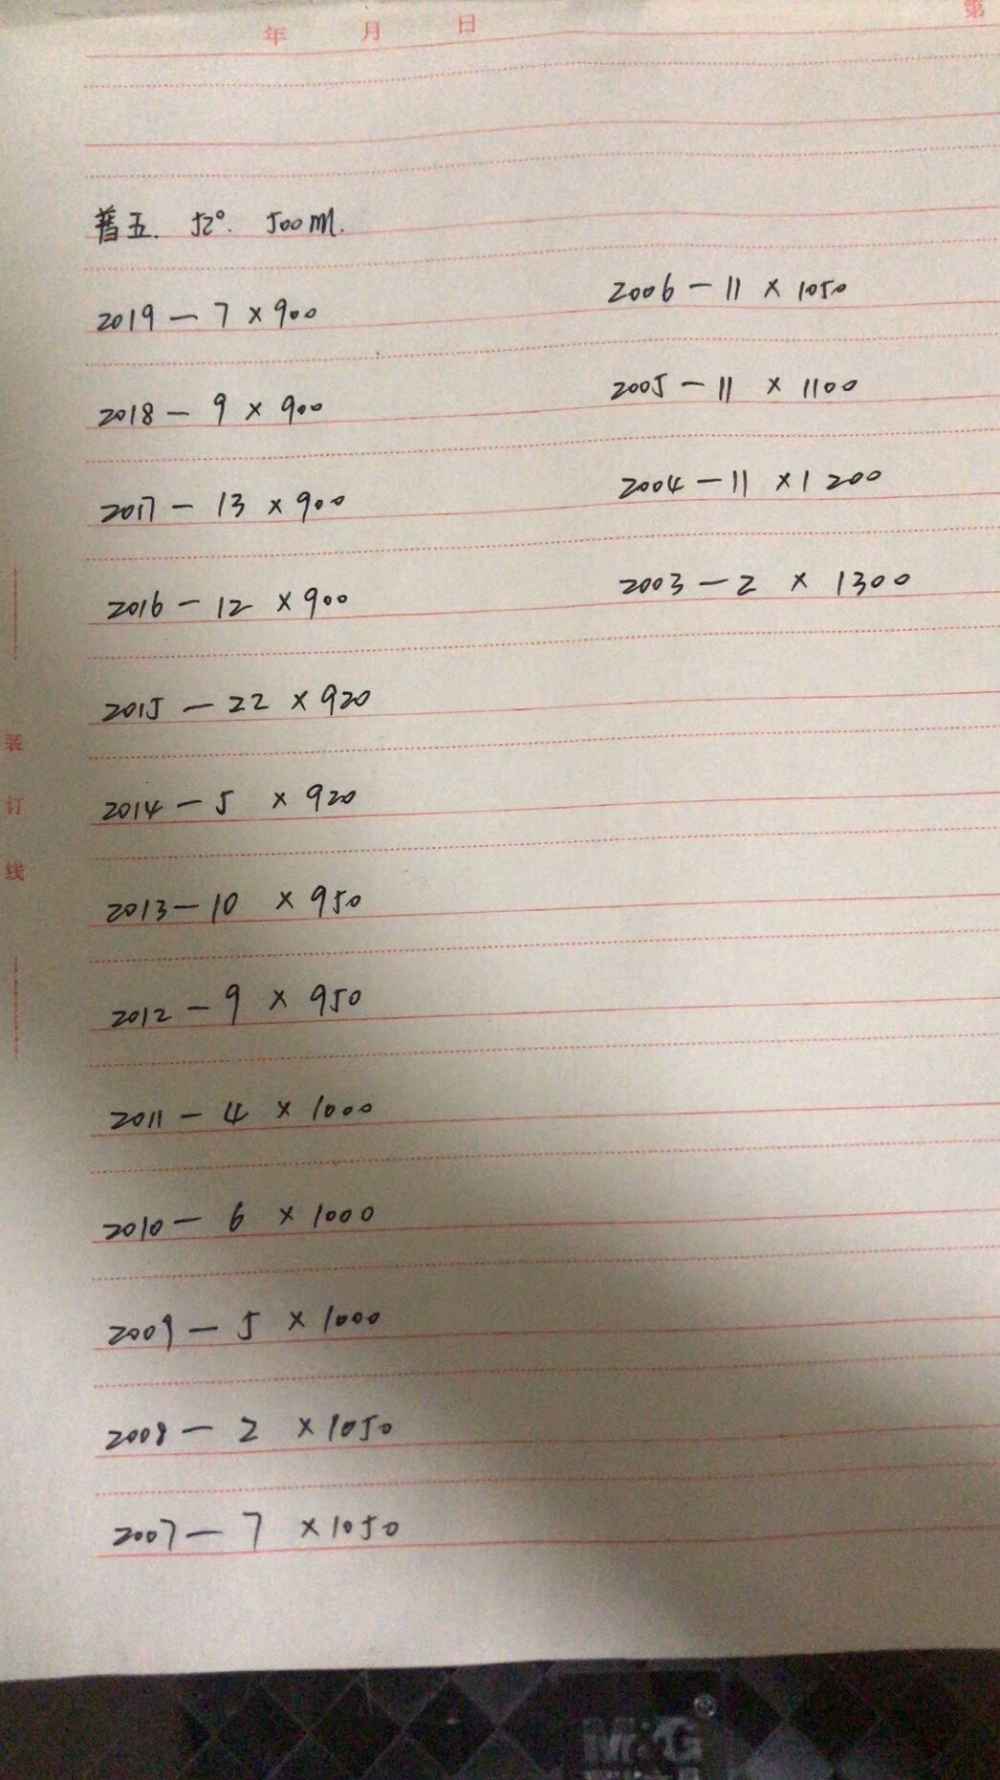 年 月 日
第
普五. 52°. 500ml.
2019 - 7 × 900
2018 - 9 × 900
2017 - 13 × 900
2016 - 12 × 900
2015 - 22 × 920
2014 - 5 × 920
2013 - 10 × 950
2012 - 9 × 950
2011 - 4 × 1000
2010 - 6 × 1000
2009 - 5 × 1000
2008 - 2 × 1050
2007 - 7 × 1050
2006 - 11 × 1050
2005 - 11 × 1100
2004 - 11 × 1200
2003 - 2 × 1300
装订线
M&G